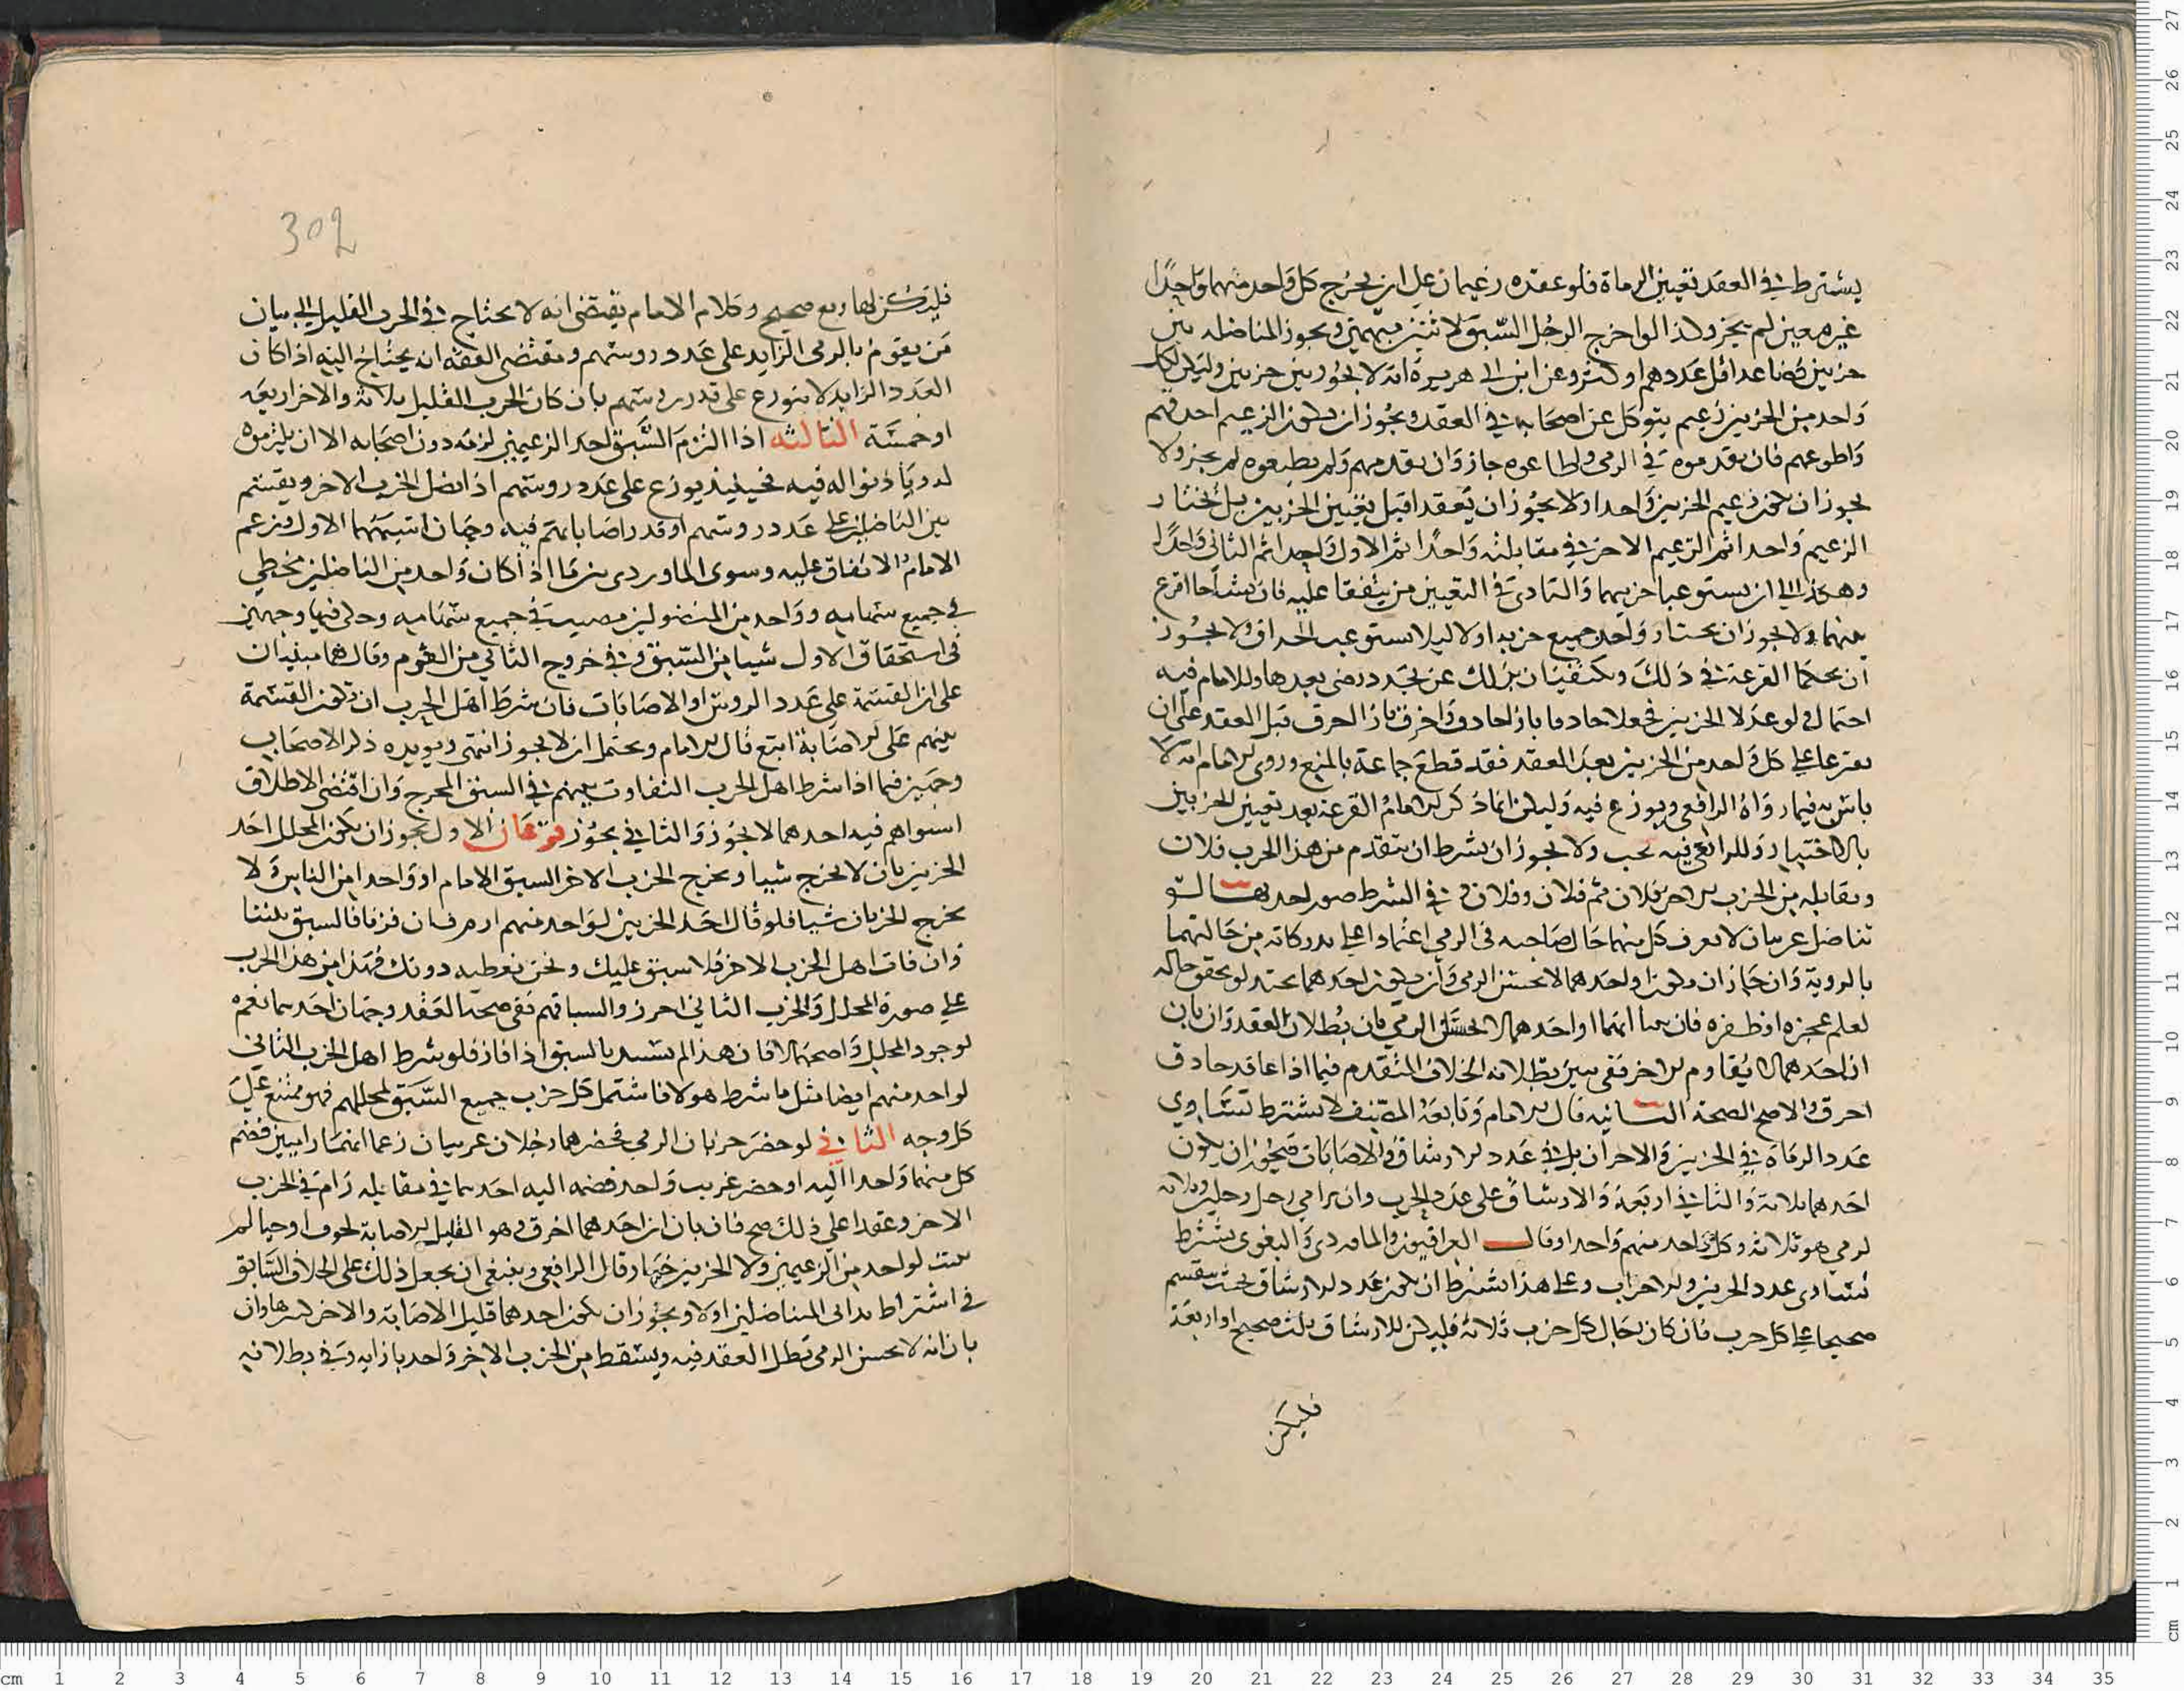 يشترط في العقد تعيين الرماة فلو عقده زعيمان على ان يخرج كل واحد منهما واحدا
غير معين لم يجز ولذا لو اخرج الرجل السبق لاثنين مبهمين ويجوز المناضلة بين
حزبين فصاعدا قل عددهم او كثر وعن ابن ابي هريرة انه لا يجوز بين حزبين وليكن لكل
واحد من الحزبين زعيم يتوكل عن اصحابه في العقد ويجوز ان يكون الزعيم احذقهم
واطوعهم فان يقدموه في الرمي ولطاعوه جاز وان يقدمهم ولم يطيعوه لم يجز ولا
يجوز ان يكون زعيم الحزبين واحدا ولا يجوز ان يعقدا قبل تعيين الحزبين بل يختار
الزعيم واحدا ثم الزعيم الاخر في مقابلته واحدا ثم الاول واحدا ثم الثاني واحدا
وهكذا الى ان يستوعبا حزبهما والبادي في التعيين من يتفقا عليه فان تشاحا اقرع
بينهما ولا يجوز ان يختار واحد جميع حزبه اولا ليلا يستوعب الحذاق ولا يجوز
ان يحكما القرعة في ذلك ويكتفيان بذلك عن تجدد رضى بعدها وللامام فيه
احتمال لو عدلا الحزبين فجعلا حادقا بازا حادق واخرق بازا اخرق قبل العقد على ان
يقترعا على كل واحد من الحزبين بعد العقد فقد قطع جماعة بالمنع وروى الامام انه لا
باس به فيما رواه الرافعي ويوزع فيه وليكن انما ذكر الامام القرعة بعد تعيين الحزبين
بالاختيار وللرافعي فيه بحث ولا يجوز ان يشرط ان يتقدم من هذا الحزب فلان
ويقابله من الحزب الاخر فلان ثم فلان وفلان وفي الشرط صور احديها لو
تناضل غريبان لا يعرف كل منهما حال صاحبه في الرمي اعتمادا على
بالروية وان جاز ان يكونا واحدهما لا يحسن الرمي وان يكون احدهما بحيث لو تحقق حاله
لعلم عجزه او ظفره فان بانا انهما او احدهما لا يحسن الرمي بان بطلان العقد وان بان
ان احدهما لا يقاوم الاخر ففي تبين بطلانه الخلاف المتقدم فيما اذا عاقد حادق
اخرق والاصح الصحة الثانية قال الامام وتابعه المصنف لا يشترط تساوي
عدد الرماة في الحزبين والاحزاب بل في عدد الارشاق والاصابات فيجوز ان يكون
احدهما ثلاثة والثاني اربعة والارشاق على عدد الحزب وان يرامي رجل رجلين وثلاثة
لرمي هو ثلاثة وكل واحد منهم واحدا وقال العراقيون والماوردي والبغوي يشترط
تساوي عدد الحزبين والاحزاب وعلى هذا يشترط ان يكون عدد الارشاق بحيث ينقسم
صحيحا على كل حزب فان كان رجال كل حزب ثلاثة فليكن للارشاق ثلث صحيح او اربعة
فليكن
302
فليكن لها ربع صحيح وكلام الامام يقتضي انه لا يحتاج في الحزب القليل الى بيان
من يقوم بالرمي الزايد على عدد روسهم ومقتضى الفقه ان يحتاج اليه اذا كان
العدد الزايد لا يتوزع على قدر روسهم بان كان الحزب القليل ثلاثة والاخر اربعة
او خمسة الثالثة اذا التزم السبق احد الزعيمين لزمه دون اصحابه الا ان يلتزموه
او ياذنوا له فيه فحينيذ يوزع على عدد روسهم اذا نضل الحزب الاخر ويقسم
بين الناضلين على عدد روسهم او قدر اصاباتهم فيه وجهان اشبههما الاول وزعم
الامام الاتفاق عليه وسوى الماوردي بينهما اذا كان واحد من الناضلين مخطي
في جميع سهامه وواحد من المنضولين مصيب في جميع سهامه وحكى فيها وجهين
في استحقاق الاول شيا من السبق وفي خروج الثاني من الغرم وقال هما مبنيان
على ان القسمة على عدد الروس او الاصابات فان شرط اهل الحزب ان تكون القسمة
بينهم على الاصابة اتبع قال الامام ويحتمل ان لا يجوز انتهى ويويده ذكر الاصحاب
وجهين فيما اذا شرط اهل الحزب التفاوت بينهم في السبق المخرج وان اقتضى الاطلاق
استواهم فيه احدهما لا يجوز والثاني يجوز فرعان الاول يجوز ان يكون المحلل احد
الحزبين بان لا يخرج شيا ويخرج الحزب الاخر السبق او الامام او واحدا من الناس ولا
يخرج الحزبان شيا فلو قال احد الحزبين لواحد منهم ارم فان فزنا فالسبق بيننا
وان فات اهل الحزب الاخر فلا سبق عليك ونحن نعطيه دونك فهذا من هذا الحزب
على صورة المحلل والحزب الثاني احرزوا السبا ففي صحة العقد وجهان احدهما نعم
لوجود المحلل واصحهما لا فان هذا لم يستبد بالسبق اذا فاز فلو شرط اهل الحزب الثاني
لواحد منهم ايضا مثل ما شرط هولا فاشتمل كل حزب جميع السبق لمحللهم فهو ممتنع على
كل وجه الثاني لو حضر حزبان الرمي فحضرهما رجلان غريبان زعما انهما راميين فضم
كل منهما واحدا اليه او حضر غريب واحد فضمه اليه احدهما في مقابلة رام في الحزب
الاخر وعقدا على ذلك صح فان بان ان احدهما اخرق وهو القليل الاصابة لخوف او حيا لم
يثبت لواحد من الزعيمين ولا الحزبين خيار وقال الرافعي وينبغي ان يجعل ذلك على الخلاف السابق
في اشتراط تداني المتناضلين اولا ويجوز ان يكون احدهما قليل الاصابة والاخر كثيرها وان
بان انه لا يحسن الرمي بطل العقد فيه ويسقط من الحزب الاخر واحد بازايه وفي بطلانه